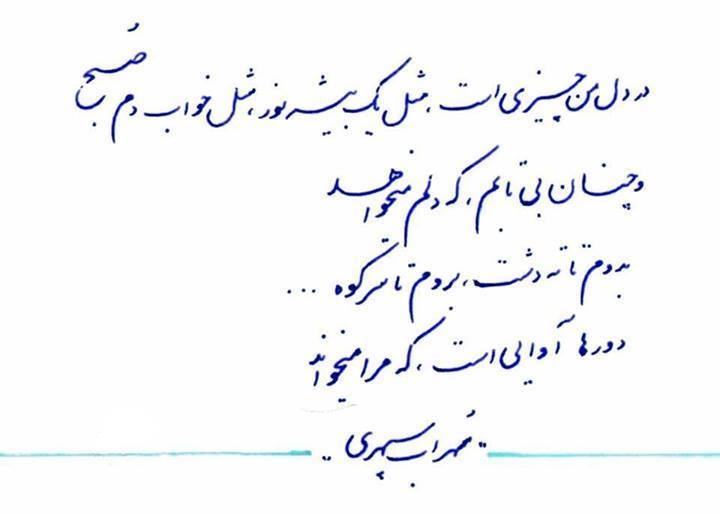 در دل من چیزی است، مثل یک بیشه نور، مثل خواب دم صبح
و چنان بی تابم، که دلم میخواهد
بدوم تا ته دشت، بروم تا سر کوه ...
دورها آوایی است، که مرا میخواند
سهراب سپهری